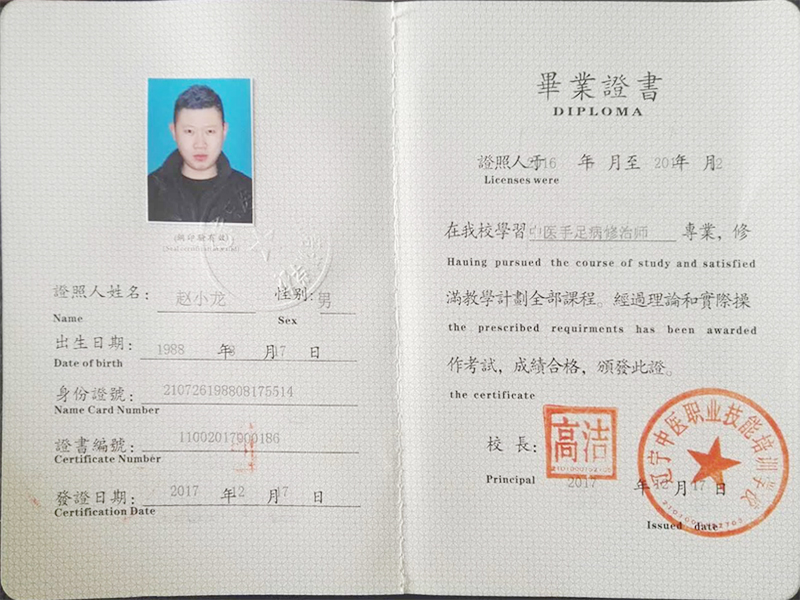 (鋼印發有效)
證照人姓名: 赵小龙 性别: 男
Name Sex
出生日期: 1988 年8 月17 日
Date of birth
身份證號: 210726198808175514
Name Card Number
證書編號: 11002017000186
Certificate Number
發證日期: 2017 年12 月17 日
Certification Date
畢業證書
DIPLOMA
證照人于2016 年 月至 201 年 月2
Licenses were
在我校學習 中医手足病修治师 專業，修
Hauing pursued the course of study and satisfied
滿教學計劃全部課程。經過理論和實際操
the prescribed requirments has been awarded
作考試，成績合格，頒發此證。
the certificate
校長: 高洁
Principal 2017 年12 月17 日
Issued date
辽宁中医职业技能培训学校